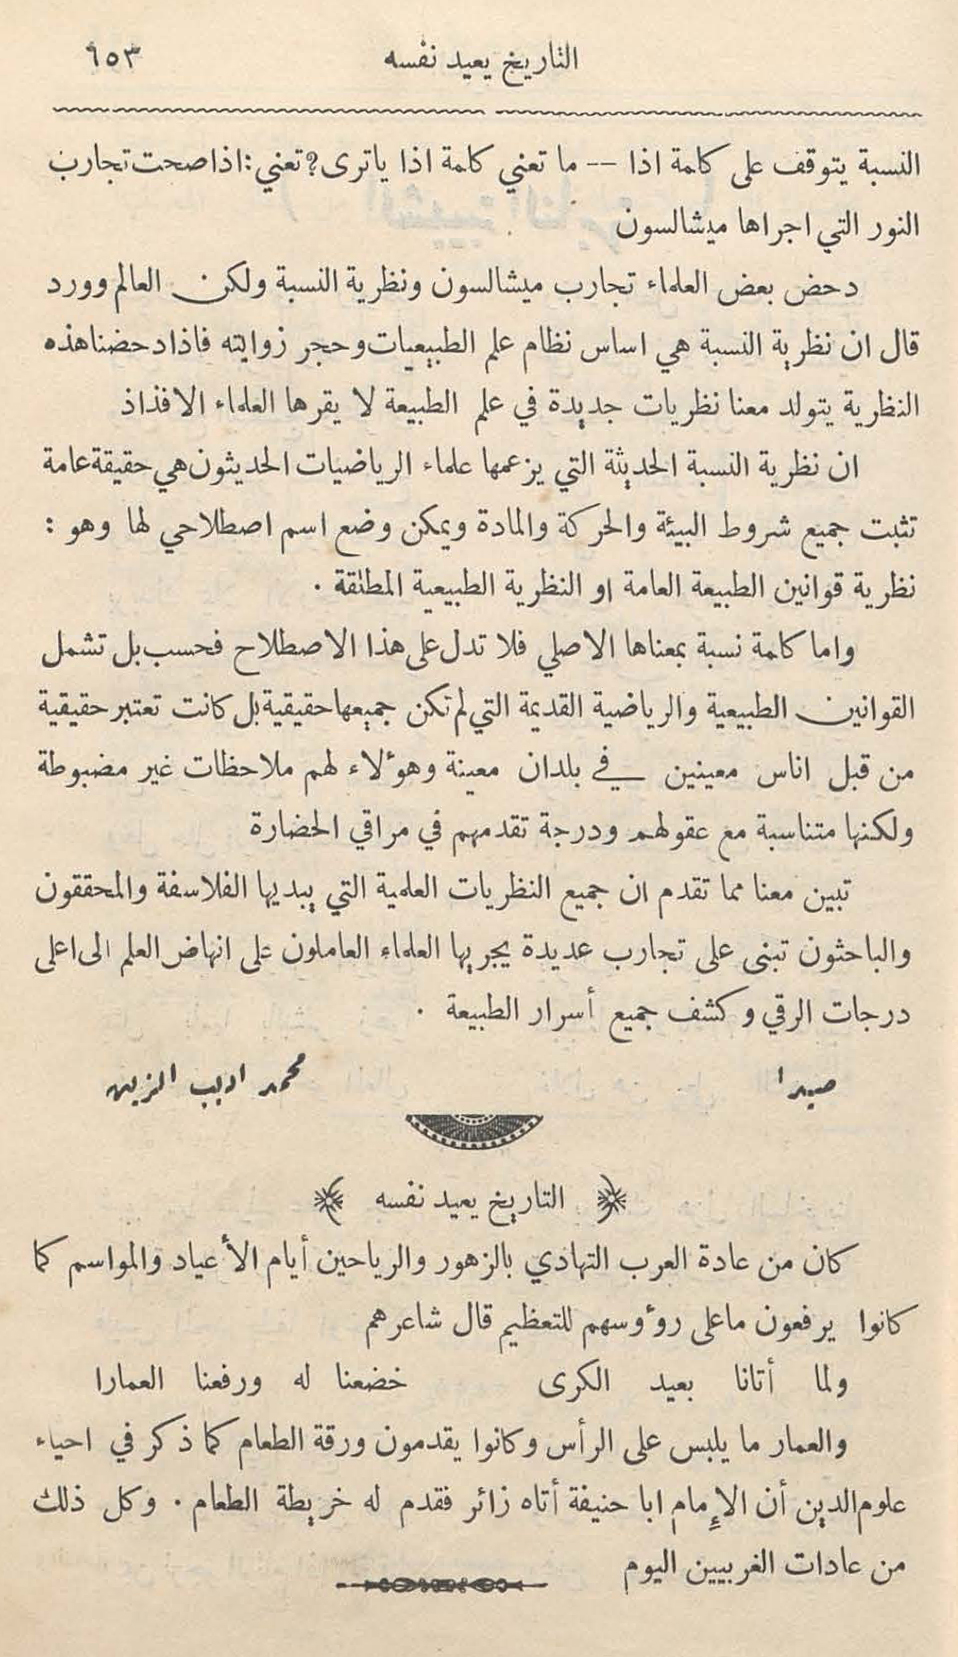 التاريخ يعيد نفسه ٦٥٣
النسبة يتوقف على كلمة اذا -- ما تعني كلمة اذا ياترى؟ تعني: اذا صحت تجارب
النور التي اجراها ميشالسون
دحض بعض العلماء تجارب ميشالسون ونظرية النسبة ولكن العالم وورد
قال ان نظرية النسبة هي اساس نظام علم الطبيعيات وحجر زوايته فاذا دحضنا هذه
النظرية يتولد معنا نظريات جديدة في علم الطبيعة لا يقرها العلماء الافذاذ
ان نظرية النسبة الحديثة التي يزعمها علماء الرياضيات الحديثون هي حقيقة عامة
تثبت جميع شروط البيئة والحركة والمادة ويمكن وضع اسم اصطلاحي لها وهو :
نظرية قوانين الطبيعة العامة او النظرية الطبيعية المطلقة .
واما كلمة نسبة بمعناها الاصلي فلا تدل على هذا الاصطلاح فحسب بل تشمل
القوانين الطبيعية والرياضية القديمة التي لم تكن جميعها حقيقية بل كانت تعتبر حقيقية
من قبل اناس معينين في بلدان معينة وهؤلاء لهم ملاحظات غير مضبوطة
ولكنها متناسبة مع عقولهم ودرجة تقدمهم في مراقي الحضارة
تبين معنا مما تقدم ان جميع النظريات العلمية التي يبديها الفلاسفة والمحققون
والباحثون تبنى على تجارب عديدة يجريها العلماء العاملون على انهاض العلم الى اعلى
درجات الرقي وكشف جميع أسرار الطبيعة .
صيدا محمد اديب الزين
التاريخ يعيد نفسه
كان من عادة العرب التهادي بالزهور والرياحين أيام الأعياد والمواسم كما
كانوا يرفعون ماعلى رؤوسهم للتعظيم قال شاعرهم
ولما أتانا بعيد الكرى خضعنا له ورفعنا العمارا
والعمار ما يلبس على الرأس وكانوا يقدمون ورقة الطعام كما ذكر في احياء
علوم الدين أن الإمام ابا حنيفة أتاه زائر فقدم له خريطة الطعام . وكل ذلك
من عادات الغربيين اليوم